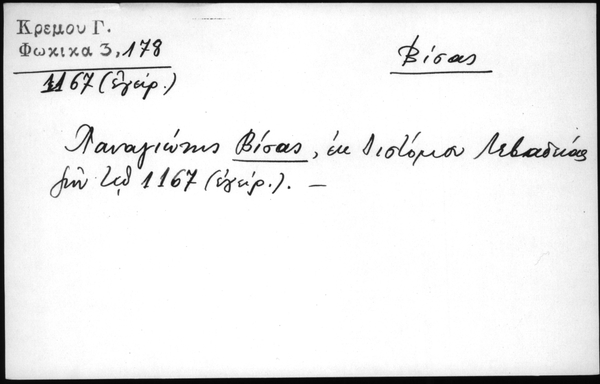 Κρεμου Γ.
Φωκικα 3, 178
1167 (ἐγείρ.)
Βίσας
Παναγιώτης Βίσας, ἐκ Διστόμου Λεβαδείας
1167 (ἐγείρ.). —